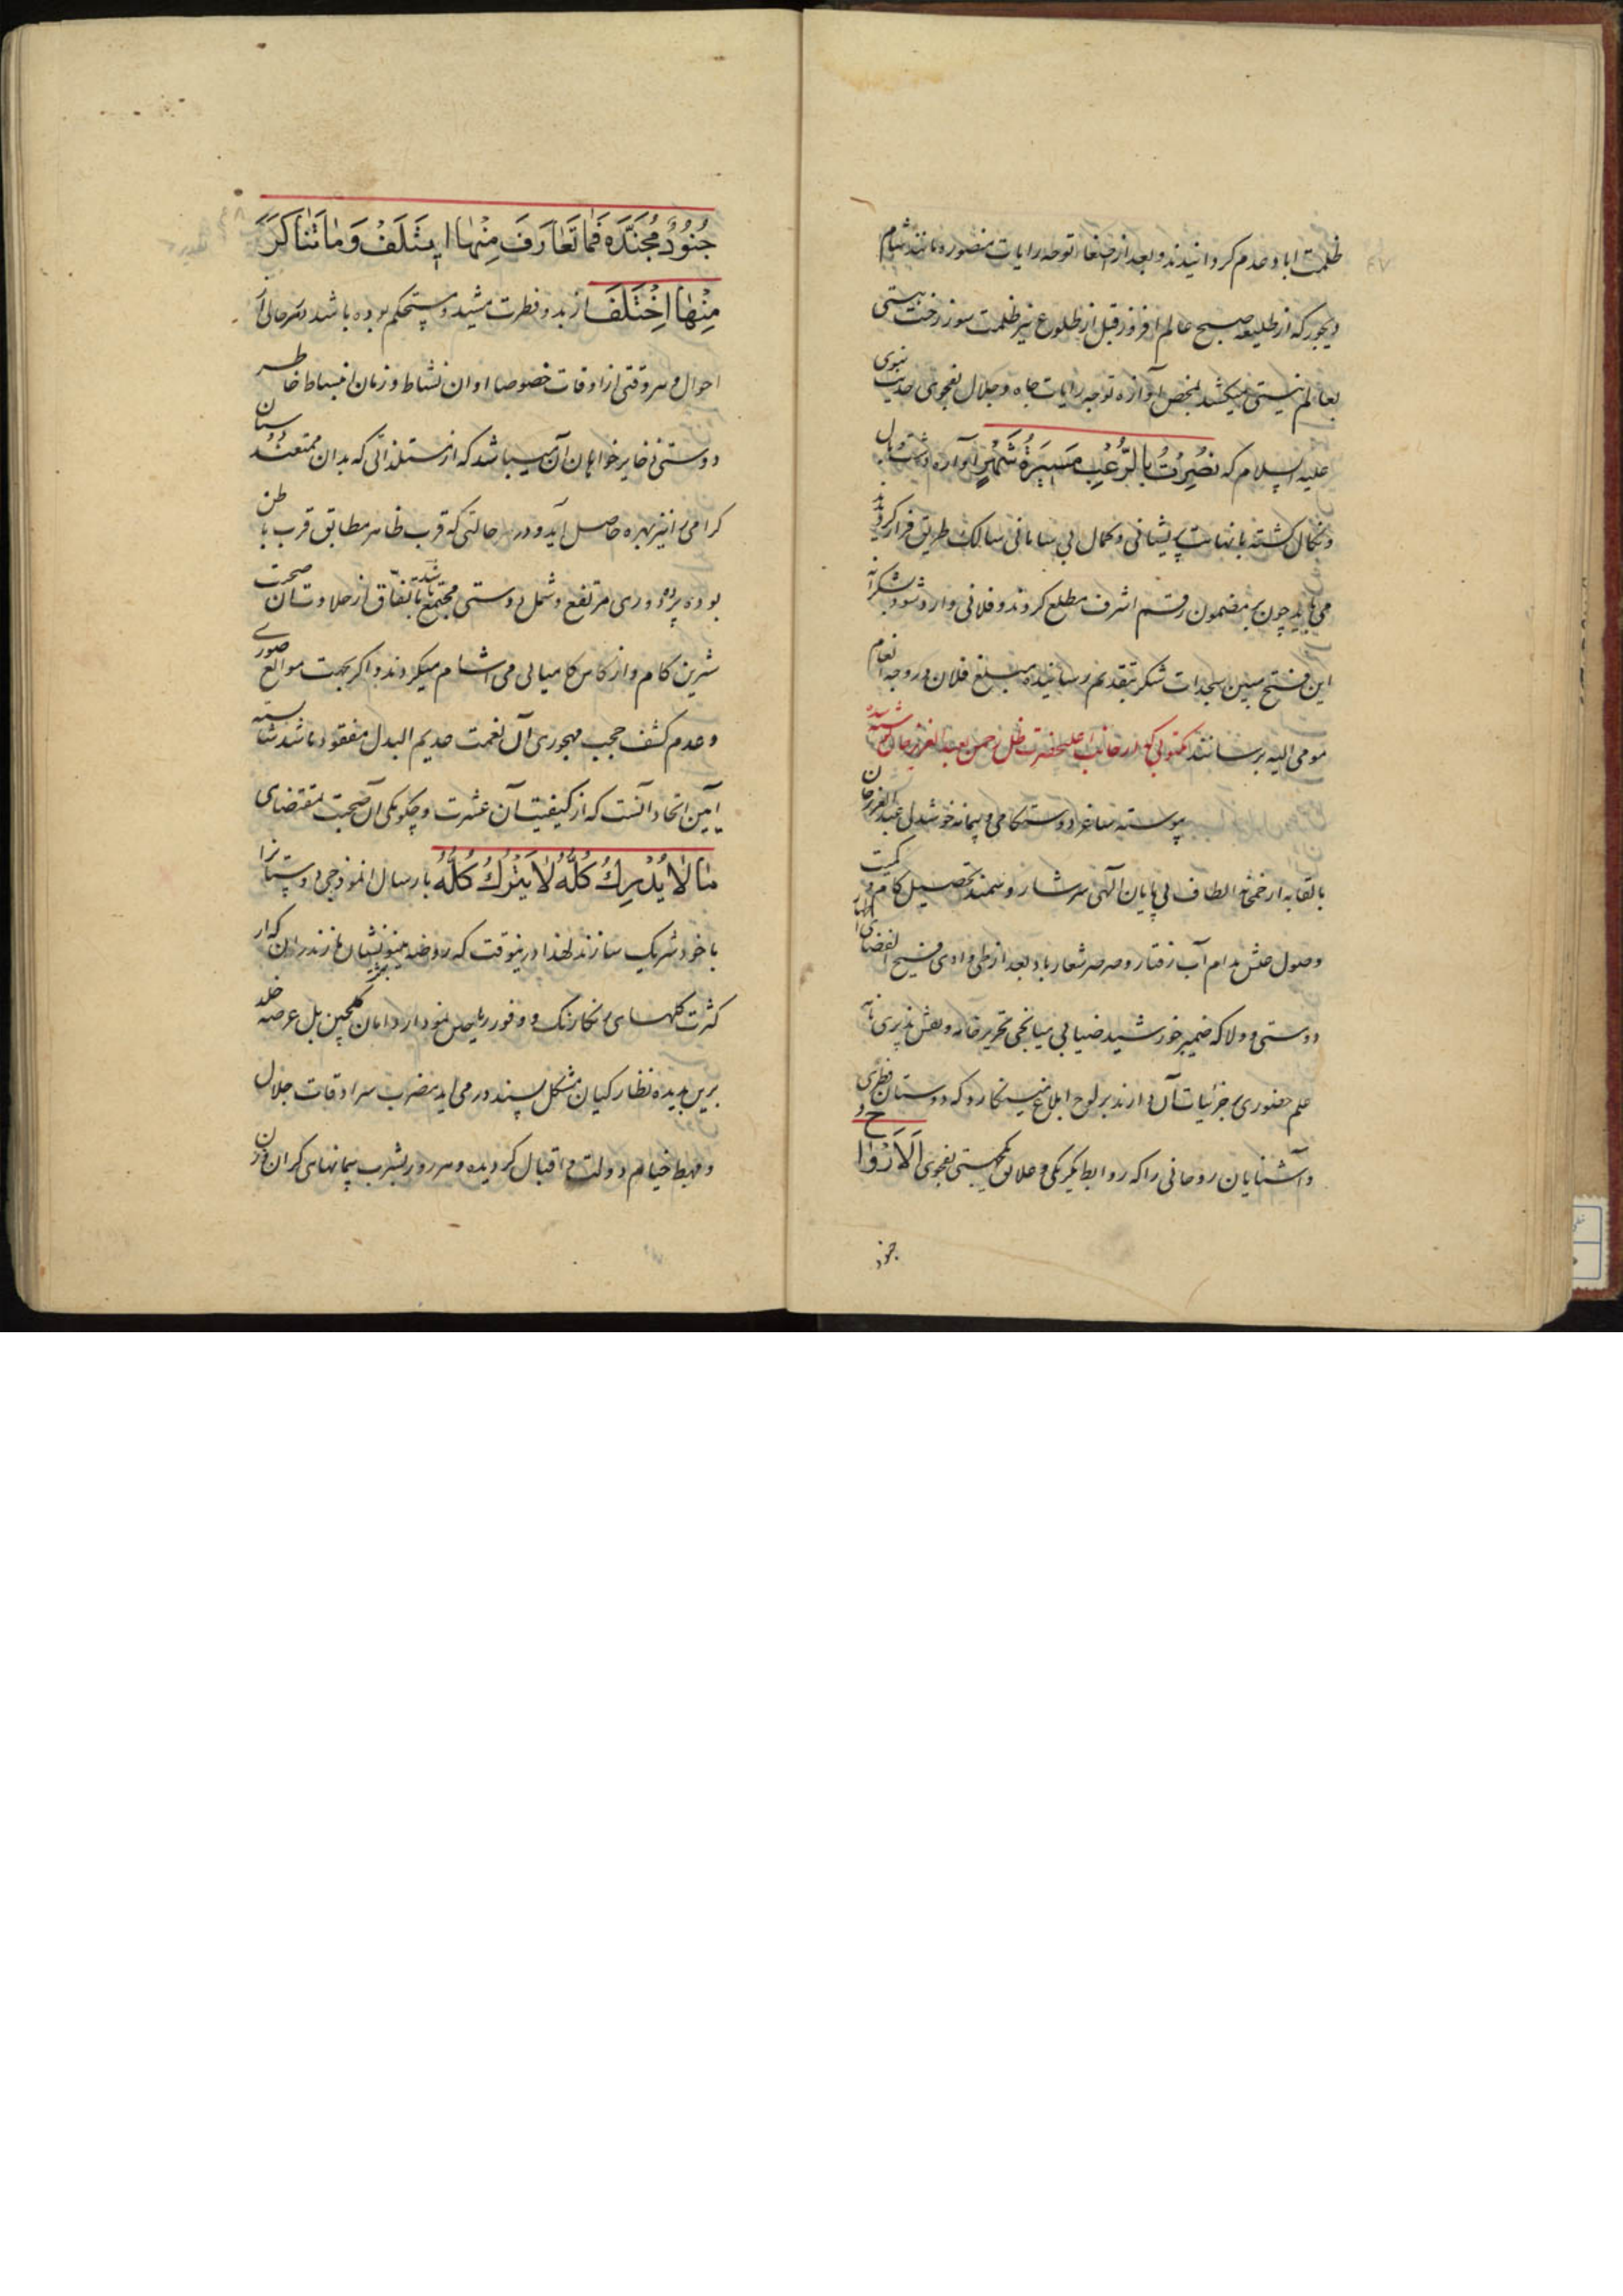 ظلمت اباد عدم کردانیدند و بعد از توجه رایات منصوره مانند شام
دیجور که از طلیعه صبح عالم افروز قبل از طلوع نیر ظلمت سوز رخت هستی
بعالم نیستی میکشد بمحض آوازه توجه رایات جاه و جلال بفحوی حدیث نبوی
علیه السلام که نُصِرْتُ بِالرُّعْبِ مَسِیرَةَ شَهْرٍ آواره دشت
و نکال کشته با نهایت پریشانی و کمال بی سامانی سالک طریق فرار کردیدند
می باید چون بر مضمون رقم اشرف مطلع کردند و فلانی وارد شود بشکرانه
این فتح مبین سجدات شکر بتقدیم رسانیده مبلغ فلان در وجه انعام
مومی الیه برسانند مکتوبی که از جانب اعلیحضرت ظل رحمن بعبد العزیز خان نوشته شده
پیوسته ساغر دوستکامی و پیمانه خوشدلی عبد العزیز خان
بالقابه از خمخانه الطاف بی پایان الهی سرشار و سمند تحصیل کام و کمیت
وصول مدام آب رفتار و صرصر شعار باد بعد از طی وادی فسیح الفضای
دوستی و ولا که ضمیر خورشید ضیا بی میانجی تحریر خامه و نقش پذیری نامه
علم حضوری بر جزئیات آن دارند بر لوح ابلاغ مینکارد که دوستان فطری
و آشنایان روحانی را که روابط یکرنگی و علایق یکجهتی بفحوی اَلْاَرْوَاح
جنود
جُنُودٌ مُجَنَّدَه فَمَا تَعَارَفَ مِنْهَا اِیتَلَفَ وَ مَا تَنَاکَرَ
مِنْهَا اِخْتَلَفَ از بدو فطرت مشید و مستحکم بوده باشد در هر حالی از
احوال و هر وقتی از اوقات خصوصا اوان نشاط و زمان انبساط خاطر
دوستی ذخایر خواهان آن میباشد که از مستلذاتی که بدان متمتعند دوستان
کرامی را نیز بهره حاصل آید و در حالتی که قرب ظاهر مطابق قرب باطن
بوده پرده دوری مرتفع و شمل دوستی مجتمع باشد باتفاق از حلاوت آن صحبت
شیرین کام و از کاس کامیابی می آشام میکردند و اکر بجهت موانع صوری
و عدم کشف حجب مهجوری آن نعمت عدیم البدل مفقود باشد شایسته
آیین اتحاد آنست که از کیفیت آن عشرت و چکونکی آن صحبت بمقتضای
مَا لَا یُدْرَكُ کُلُّهُ لَا یُتْرَكُ کُلُّهُ بارسال انموذجی دوستانرا
با خود شریک سازند لهذا درینوقت که روضه مینو نشان مازندران که از
کثرت کلهای رنکارنک و وفور ریاحین نمودار دامان کلچین بل عرصه خلد
برین بدیده نظارکیان مشکل پسند در می آید مضرب سرادقات جلال
و مهبط خیام دولت و اقبال کردیده و هر روز بشرب پیمانهای کران